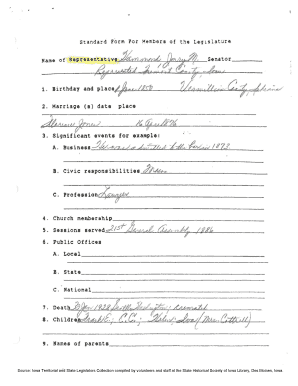 Standard Form For Members of the Legislature
Name of Representative Hammond, Jerry M. Senator
Represented Fremont County, Iowa
1. Birthday and place 1850 Vermilion County,
2. Marriage (s) date place
Jones 16 Apr 1876
3. Significant events for example:
A. Business admitted to the bar 1873
B. Civic responsibilities Mason
C. Profession Lawyer
4. Church membership
5. Sessions served 21st General Assembly 1886
6. Public Offices
A. Local
B. State
C. National
7. Death Nov 1928 cremated
8. Children (Mrs.
9. Names of parents
Source: Iowa Territorial and State Legislators Collection compiled by volunteers and staff at the State Historical Society of Iowa Library, Des Moines, Iowa